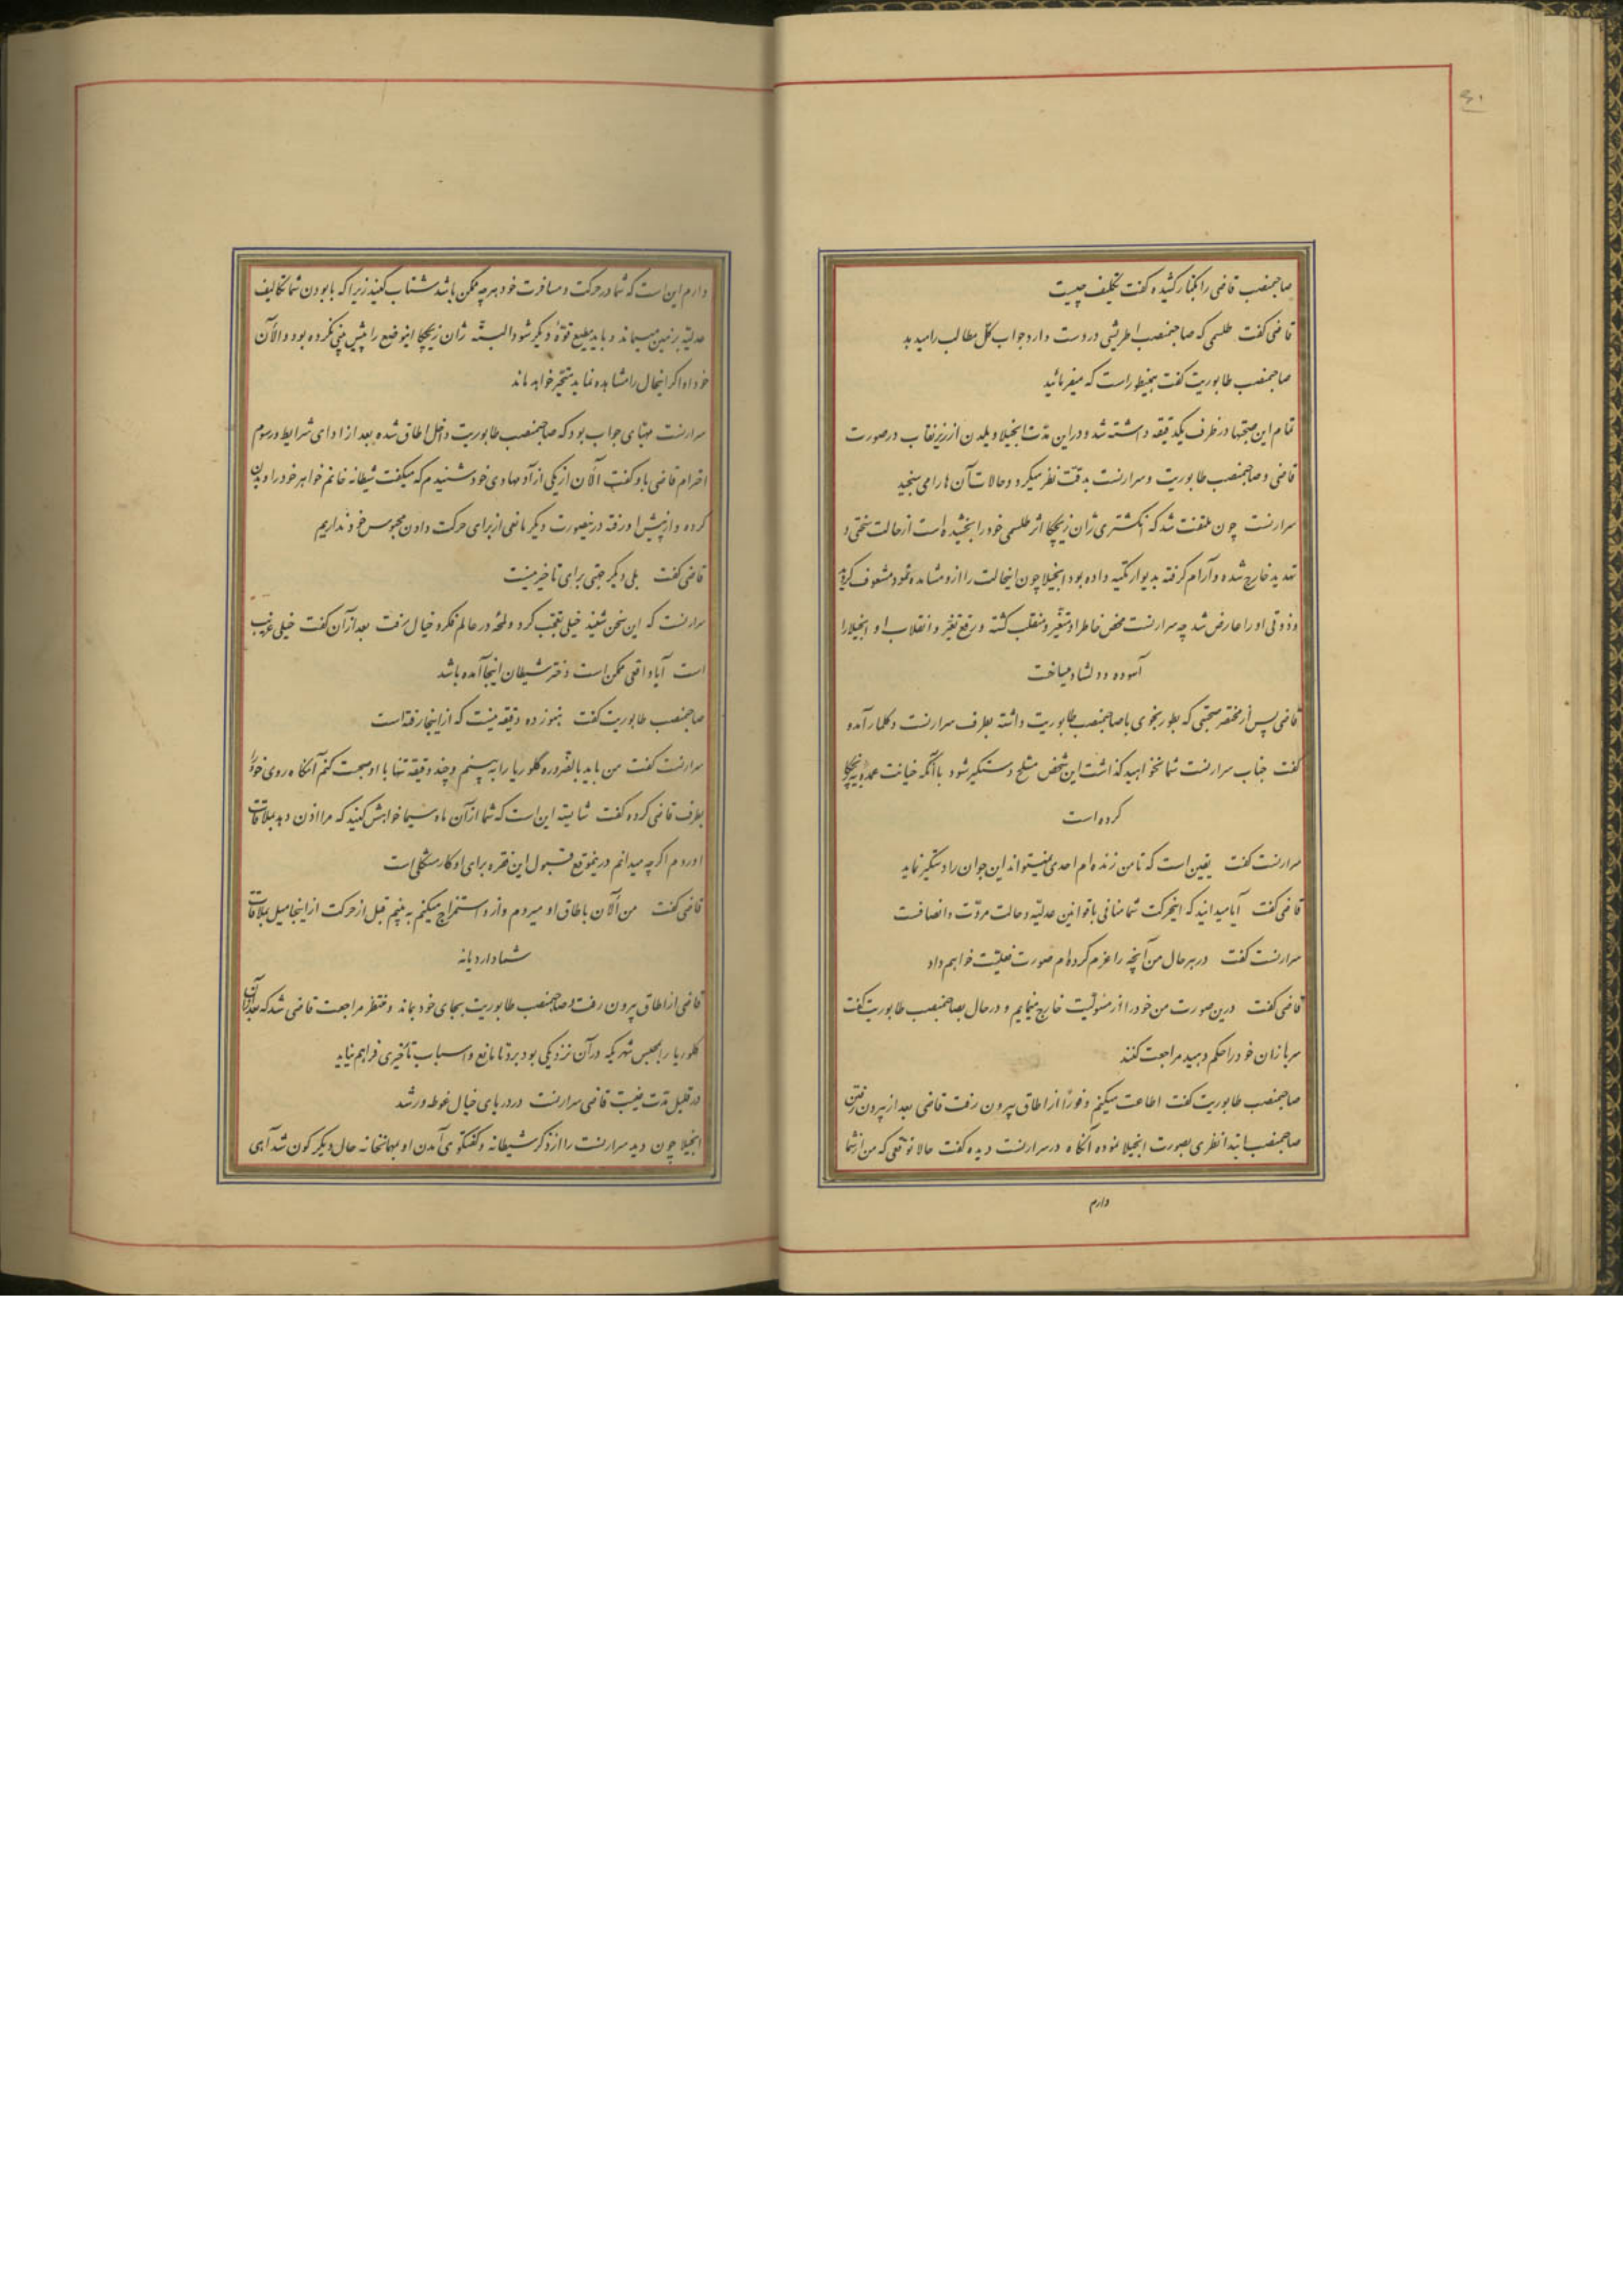 ۶۰
صاحبمنصب قاضی را بکنار کشیده گفت تکلیف چیست
قاضی گفت طلسمی که صاحبمنصب اطریشی در دست دارد جواب کل مطالب را میدهد
صاحبمنصب طابوریت گفت همینطور است که میفرمائید
تمام این صحبتها در ظرف یکدقیقه داشته شد و در این مدت انجیلا ویلدن از زیر نقاب در صورت
قاضی و صاحبمنصب طابوریت و سرارنست بدقت نظر میکرد و حالات آن ها را می سنجید
سرارنست چون ملتفت شد که انگشتری ژان زیچکا اثر طلسمی خود را بخشیده است از حالت سختی و
تهدید خارج شده و آرام گرفته بدیوار تکیه داده بود انجیلا چون اینحالت را ازو مشاهده نمود مشعوف گردید
و ذوقی او را عارض شد چه سرارنست محض خاطر او متغیر و منقلب گشته و رفع تغیر و انقلاب او انجیلا را
آسوده و دلشاد میساخت
قاضی پس از مختصر صحبتی که بطور نجوی با صاحبمنصب طابوریت داشته بطرف سرارنست دکلمار آمده
گفت جناب سرارنست شما نخواهید گذاشت این شخص مسلح دستگیر شود با آنکه خیانت عمده به زیچکا
کرده است
سرارنست گفت یقین است که تا من زنده ام احدی نمیتواند این جوان را دستگیر نماید
قاضی گفت آیا میدانید که اینحرکت شما منافی با قوانین عدلیه و حالت مروت و انصافست
سرارنست گفت در هر حال من آنچه را عزم کرده ام صورت فعلیت خواهم داد
قاضی گفت درین صورت من خود را از مسئولیت خارج مینمایم و در حال بصاحبمنصب طابوریت گفت
سربازان خود را حکم دهید مراجعت کنند
صاحبمنصب طابوریت گفت اطاعت میکنم و فوراً از اطاق بیرون رفت قاضی بعد از بیرون رفتن
صاحبمنصب ابتدا نظری بصورت انجیلا نموده آنگاه در سرارنست دیده گفت حالا توقعی که من از شما
دارم
دارم این است که شما در حرکت و مسافرت خود هر چه ممکن باشد شتاب کنید زیرا که با بودن شما تکالیف
عدلیه بر زمین میماند و باید مطیع قوهٔ دیگر شود البته ژان زیچکا اینوضع را پیش بینی نکرده بود و الآن
خود او اگر اینحال را مشاهده نماید متحیر خواهد ماند
سرارنست مهیای جواب بود که صاحبمنصب طابوریت داخل اطاق شده بعد از ادای شرایط و رسوم
احترام قاضی باو گفت الآن از یکی از آدمهای خود شنیدم که میگفت شیطانه خانم خواهر خود را دیدن
کرده و از پیش او رفته درینصورت دیگر مانعی از برای حرکت دادن محبوس خود نداریم
قاضی گفت بلی دیگر جهتی برای تاخیر نیست
سرارنست که این سخن شنید خیلی تعجب کرد و لمحه در عالم فکر و خیال برفت بعد از آن گفت خیلی غریب
است آیا واقعی ممکن است دختر شیطان اینجا آمده باشد
صاحبمنصب طابوریت گفت هنوز ده دقیقه نیست که از اینجا رفته است
سرارنست گفت من باید بالضروره گلوریا را به بینم و چند دقیقه تنها با او صحبت کنم آنگاه روی خود را
بطرف قاضی کرده گفت شایسته این است که شما از آن ماه سیما خواهش کنید که مرا اذن دهد بملاقات
او روم اگرچه میدانم درینموقع قبول این فقره برای او کار مشکلی است
قاضی گفت من الآن باطاق او میروم و از و استمزاج میکنم به بینم قبل از حرکت از اینجا میل بملاقات
شما دارد یا نه
قاضی از اطاق بیرون رفت و صاحبمنصب طابوریت بجای خود بماند و منتظر مراجعت قاضی شد که بعد از آن
گلوریا را بمحبس شهریکه در آن نزدیکی بود برد تا مانع و اسباب تأخیری فراهم نیاید
در قلیل مدت غیبت قاضی سرارنست در دریای خیال غوطه ور شد
انجیلا چون دید سرارنست را از ذکر شیطانه و گفتگوی آمدن او بمهمانخانه حال دیگر گون شد آهی